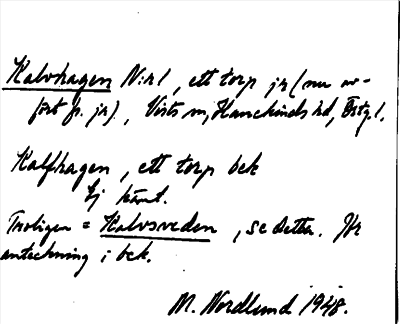 Kalvhagen N:r 1, ett torp jr (nu av-
fört fr. jr), Vists sn, Hanekinds hd, Östg. l.
Kalfhagen, ett torp bek
Ej känt.
Troligen = Kalvsveden, se detta. Jfr
anteckning i bek.
M. Nordlund 1948.